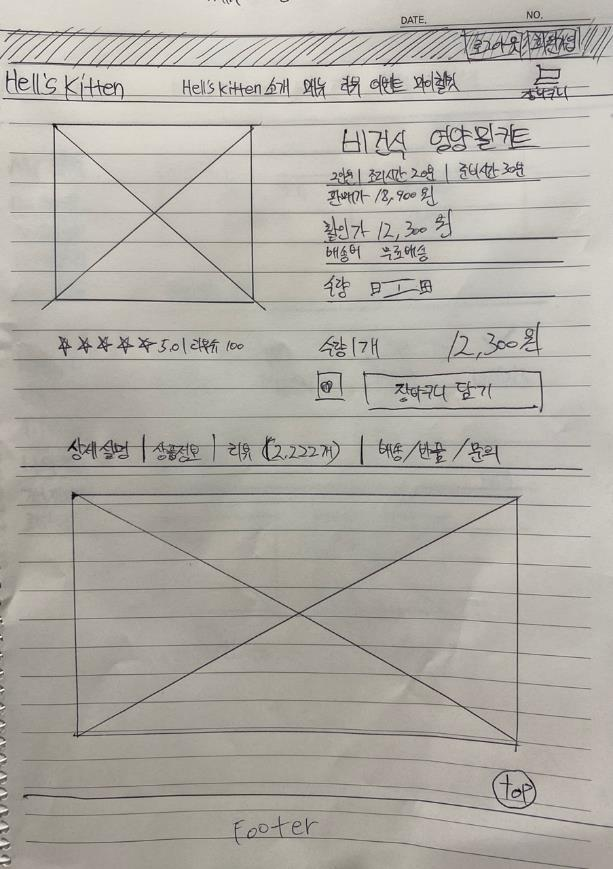 DATE. NO.
로그아웃 회원가입
Hell's Kitten Hell's Kitten 소개 메뉴 리뷰 이벤트 마이힐킷
장바구니
비건식 영양밀키트
2인분 | 조리시간 20분 | 준비시간 30분
판매가 18,900원
할인가 12,300원
배송비 무료배송
수량 - 1 +
☆☆☆☆☆ 5.0 | 리뷰수 100
수량 1개 12,300원
장바구니 담기
상세설명 | 상품정보 | 리뷰 (2,222개) | 배송/반품/문의
top
Footer